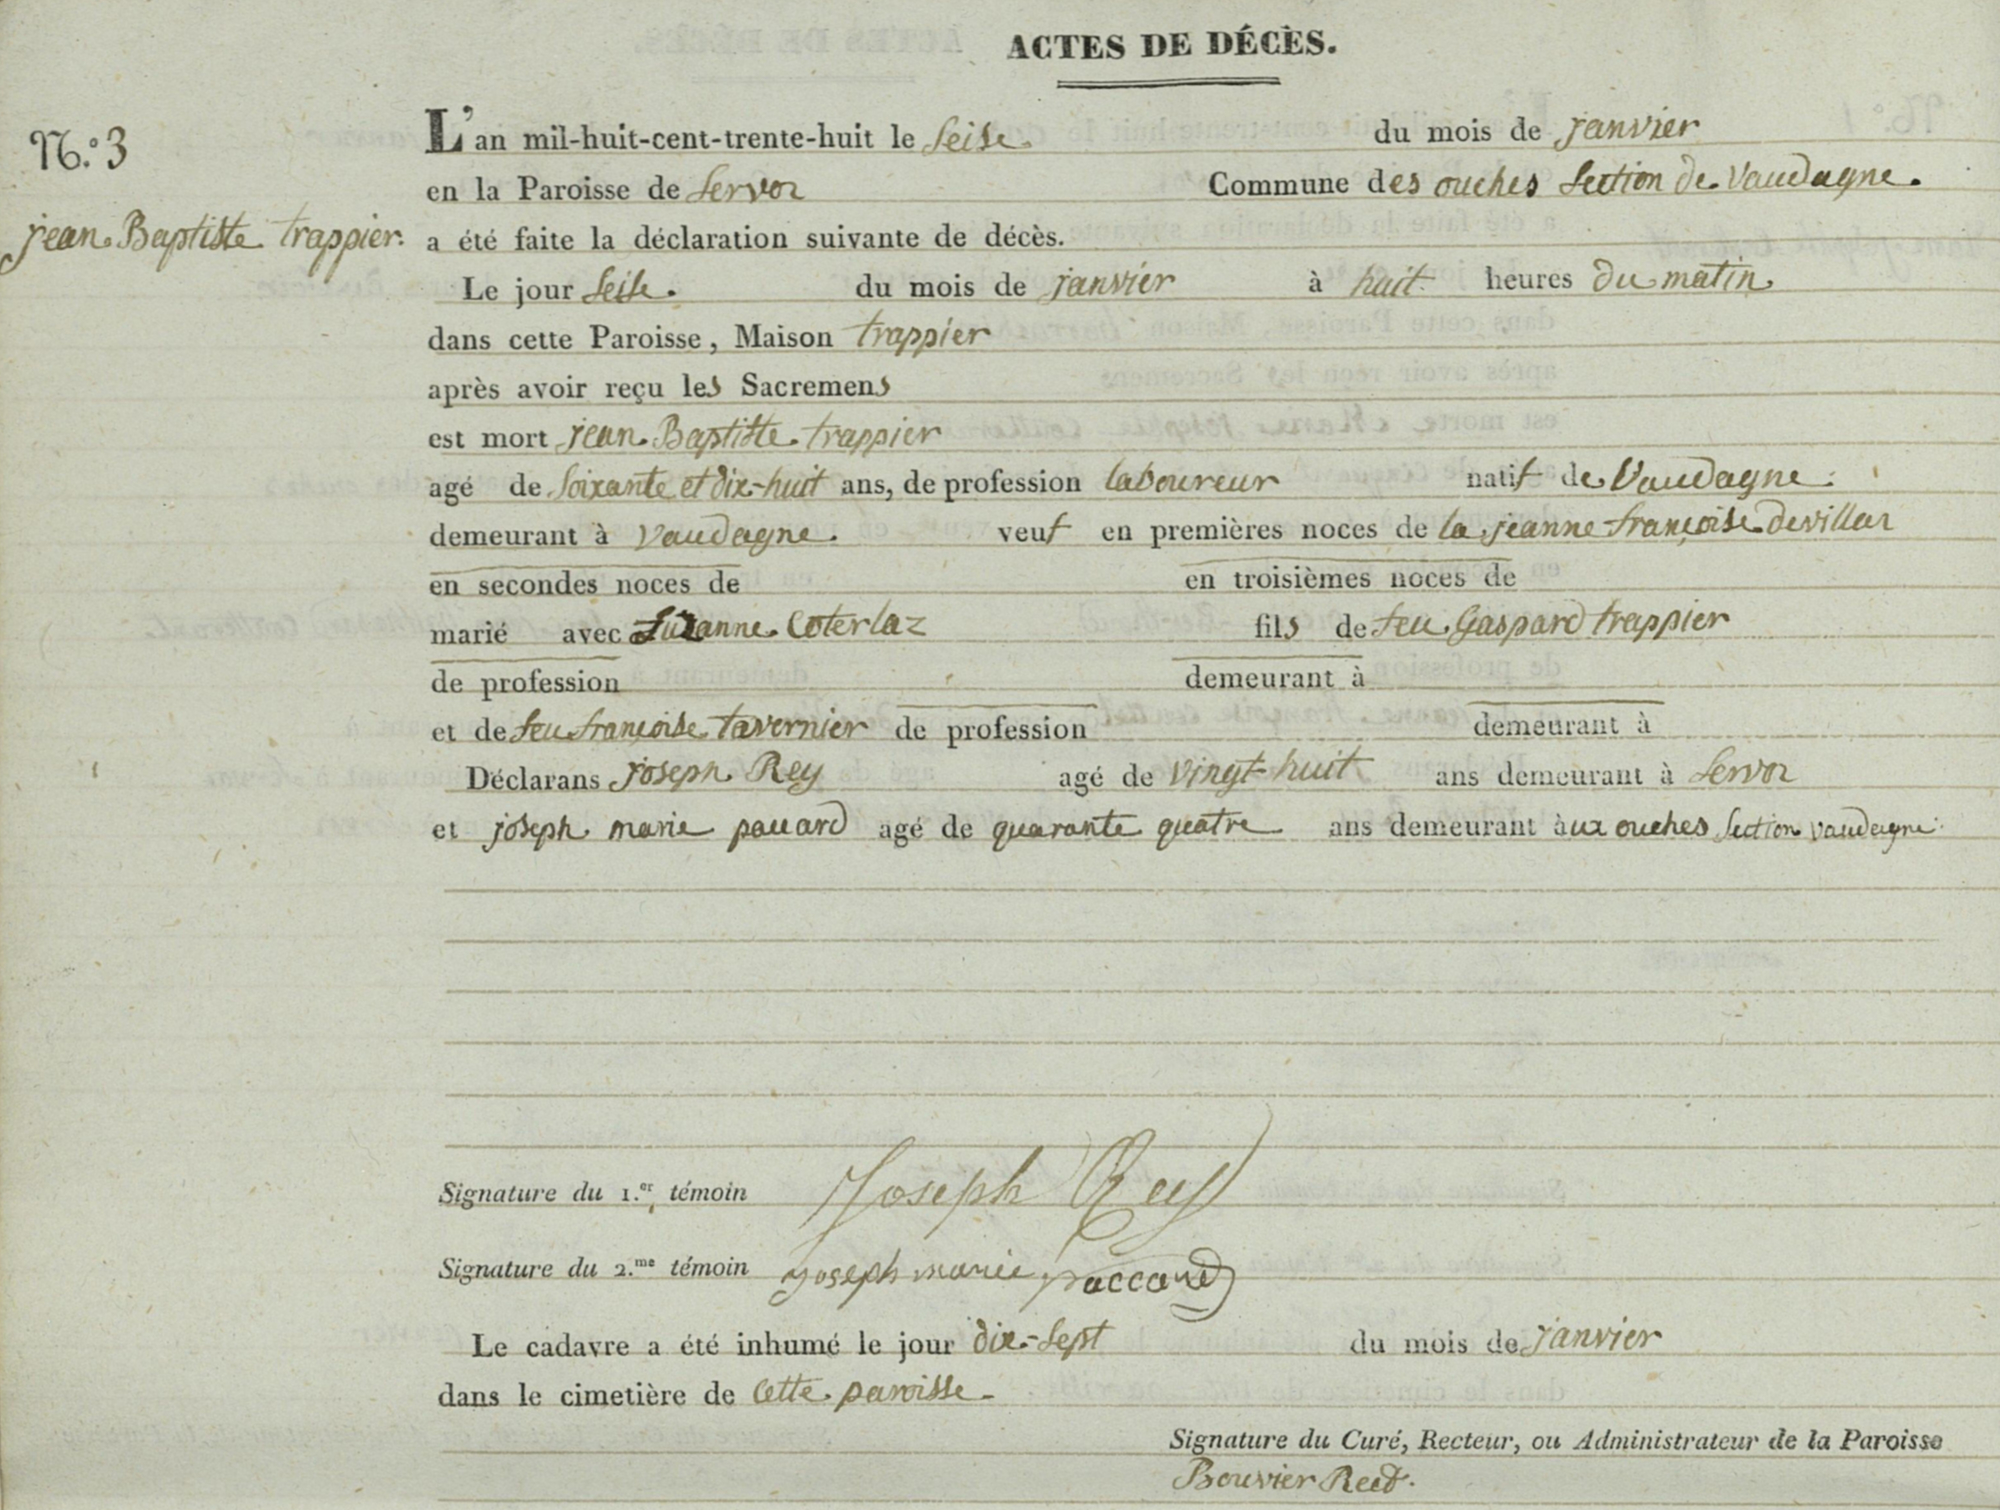 ACTES DE DÉCÈS.
N.o 3
L'an mil-huit-cent-trente-huit le seise du mois de janvier
en la Paroisse de servoz Commune des ouches section de vaudagne.
jean Baptiste trappier.
a été faite la déclaration suivante de décès.
Le jour seise. du mois de janvier à huit heures du matin
dans cette Paroisse, Maison trappier
après avoir reçu les Sacremens
est mort jean Baptiste trappier
agé de soixante et dix-huit ans, de profession laboureur natif de Vaudagne.
demeurant à vaudagne. veuf en premières noces de la jeanne françoise devillaz
en secondes noces de en troisièmes noces de
marié avec suzanne Coterlaz fils de feu Gaspard trappier
de profession demeurant à
et de feu françoise tavernier de profession demeurant à
Déclarans joseph Rey agé de vingt-huit ans demeurant à servoz
et joseph marie pacard agé de quarante quatre ans demeurant àux ouches section vaudagne.
Signature du 1.er témoin Joseph Rey
Signature du 2.me témoin joseph marie paccard
Le cadavre a été inhumé le jour dix-sept du mois de janvier
dans le cimetière de cette paroisse-
Signature du Curé, Recteur, ou Administrateur de la Paroisse
Bouvier Rect.